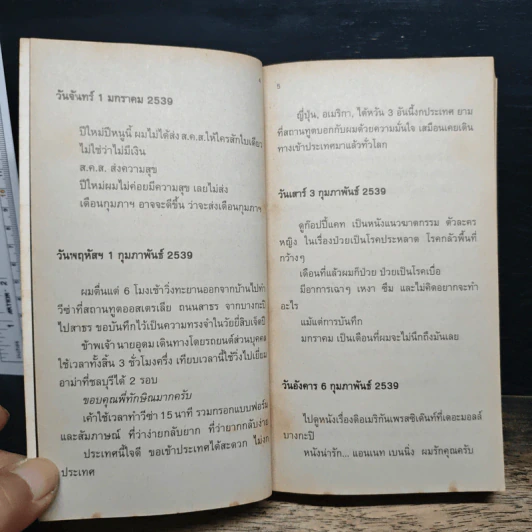 วันจันทร์ 1 มกราคม 2539
ปีใหม่ปีหนูนี้ ผมไม่ได้ส่ง ส.ค.ส.ให้ใครสักใบเดียว
ไม่ใช่ว่าไม่มีเงิน
ส.ค.ส. ส่งความสุข
ปีใหม่ผมไม่ค่อยมีความสุข เลยไม่ส่ง
เดือนกุมภาฯ อาจจะดีขึ้น ว่าจะส่งเดือนกุมภาฯ
วันพฤหัสฯ 1 กุมภาพันธ์ 2539
ผมตื่นแต่ 6 โมงเช้าวิ่งทะยานออกจากบ้านไปทำ
วีซ่าที่สถานทูตออสเตรเลีย ถนนสาธร จากบางกะปิ
ไปสาธร ขอบันทึกไว้เป็นความทรงจำในวัยยี่สิบเจ็ดปี
ข้าพเจ้า นายอุดม เดินทางโดยรถยนต์ส่วนบุคคล
ใช้เวลาทั้งสิ้น 3 ชั่วโมงครึ่ง เทียบเวลานี้ใช้วิ่งไปเยี่ยม
อาม่าที่ชลบุรีได้ 2 รอบ
ขอบคุณพี่ทักษิณมากครับ
เค้าใช้เวลาทำวีซ่า 15 นาที รวมกรอกแบบฟอร์ม
และสัมภาษณ์ ที่ว่าง่ายกลับยาก ที่ว่ายากกลับง่าย
ประเทศนี้ใจดี ขอเข้าประเทศได้สะดวก ไม่งก
ประเทศ
5
ญี่ปุ่น, อเมริกา, ไต้หวัน 3 อันนี้งกประเทศ ยาม
ที่สถานทูตบอกกับผมด้วยความมั่นใจ เสมือนเคยเดิน
ทางเข้าประเทศมาแล้วทั่วโลก
วันเสาร์ 3 กุมภาพันธ์ 2539
ดูก๊อปปี้แคท เป็นหนังแนวฆาตกรรม ตัวละคร
หญิง ในเรื่องป่วยเป็นโรคประหลาด โรคกลัวพื้นที่
กว้างๆ
เดือนที่แล้วผมก็ป่วย ป่วยเป็นโรคเบื่อ
มีอาการเฉาๆ เหงา ซึม และไม่คิดอยากจะทำ
อะไร
แม้แต่การบันทึก
มกราคม เป็นเดือนที่ผมจะไม่นึกถึงมันเลย
วันอังคาร 6 กุมภาพันธ์ 2539
ไปดูหนังเรื่องดิอเมริกันเพรสซิเด้นท์ที่เดอะมอลล์
บางกะปิ
หนังน่ารัก... แอนเนท เบนนิ่ง ผมรักคุณครับ